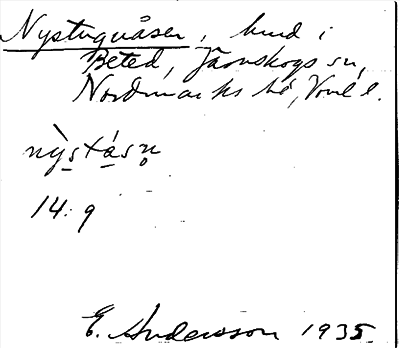 Nystuguåsen, hmd i
Beted, Järnskogs sn,
Nordmarks hd, Vrml l.
nỳs̱tá̱sn̥
14. 9
E. Andersson 1935.